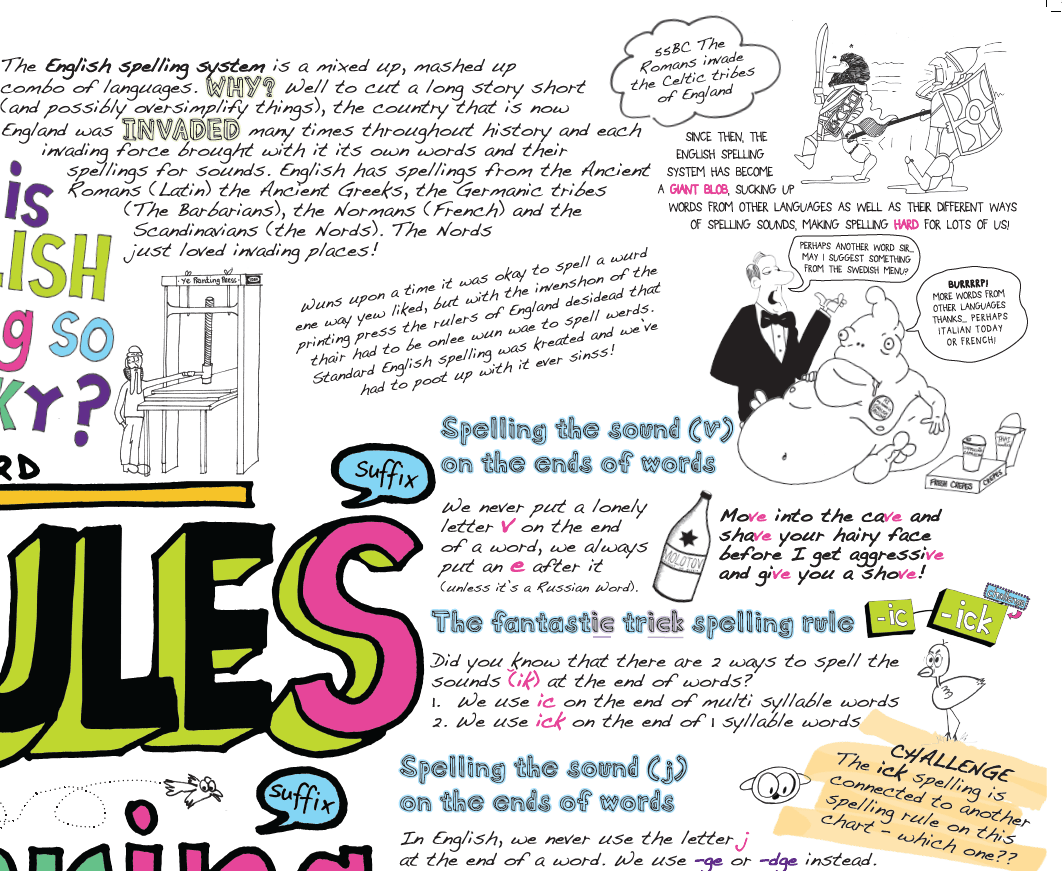 The English spelling system is a mixed up, mashed up
combo of languages. WHY? Well to cut a long story short
(and possibly oversimplify things), the country that is now
England was INVADED many times throughout history and each
invading force brought with it its own words and their
spellings for sounds. English has spellings from the Ancient
Romans (Latin) the Ancient Greeks, the Germanic tribes
(The Barbarians), the Normans (French) and the
Scandinavians (the Nords). The Nords
just loved invading places!
55BC The
Romans invade
the Celtic tribes
of England
SINCE THEN, THE
ENGLISH SPELLING
SYSTEM HAS BECOME
A GIANT BLOB, SUCKING UP
WORDS FROM OTHER LANGUAGES AS WELL AS THEIR DIFFERENT WAYS
OF SPELLING SOUNDS, MAKING SPELLING HARD FOR LOTS OF US!
is
LISH
g so
KY?
Ye Printing Press
Wuns upon a time it was okay to spell a wurd
ene way yew liked, but with the invenshon of the
printing press the rulers of England desidead that
thair had to be onlee wun wae to spell werds.
Standard English spelling was kreated and we've
had to poot up with it ever sinss!
PERHAPS ANOTHER WORD SIR,
MAY I SUGGEST SOMETHING
FROM THE SWEDISH MENU?
BURRRRP!
MORE WORDS FROM
OTHER LANGUAGES
THANKS... PERHAPS
ITALIAN TODAY
OR FRENCH!
FRESH CREPES
CREPES
RD
ULES
Suffix
Spelling the sound (v)
on the ends of words
We never put a lonely
letter v on the end
of a word, we always
put an e after it
(unless it's a Russian Word).
MOLOTOV
Move into the cave and
shave your hairy face
before I get aggressive
and give you a shove!
The fantastic trick spelling rule
-ic
-ick
Did you know that there are 2 ways to spell the
sounds (ik) at the end of words?
1. We use ic on the end of multi syllable words
2. We use ick on the end of 1 syllable words
CHALLENGE
The ick spelling is
connected to another
spelling rule on this
chart - which one??
Suffix
Spelling the sound (j)
on the ends of words
In English, we never use the letter j
at the end of a word. We use -ge or -dge instead.